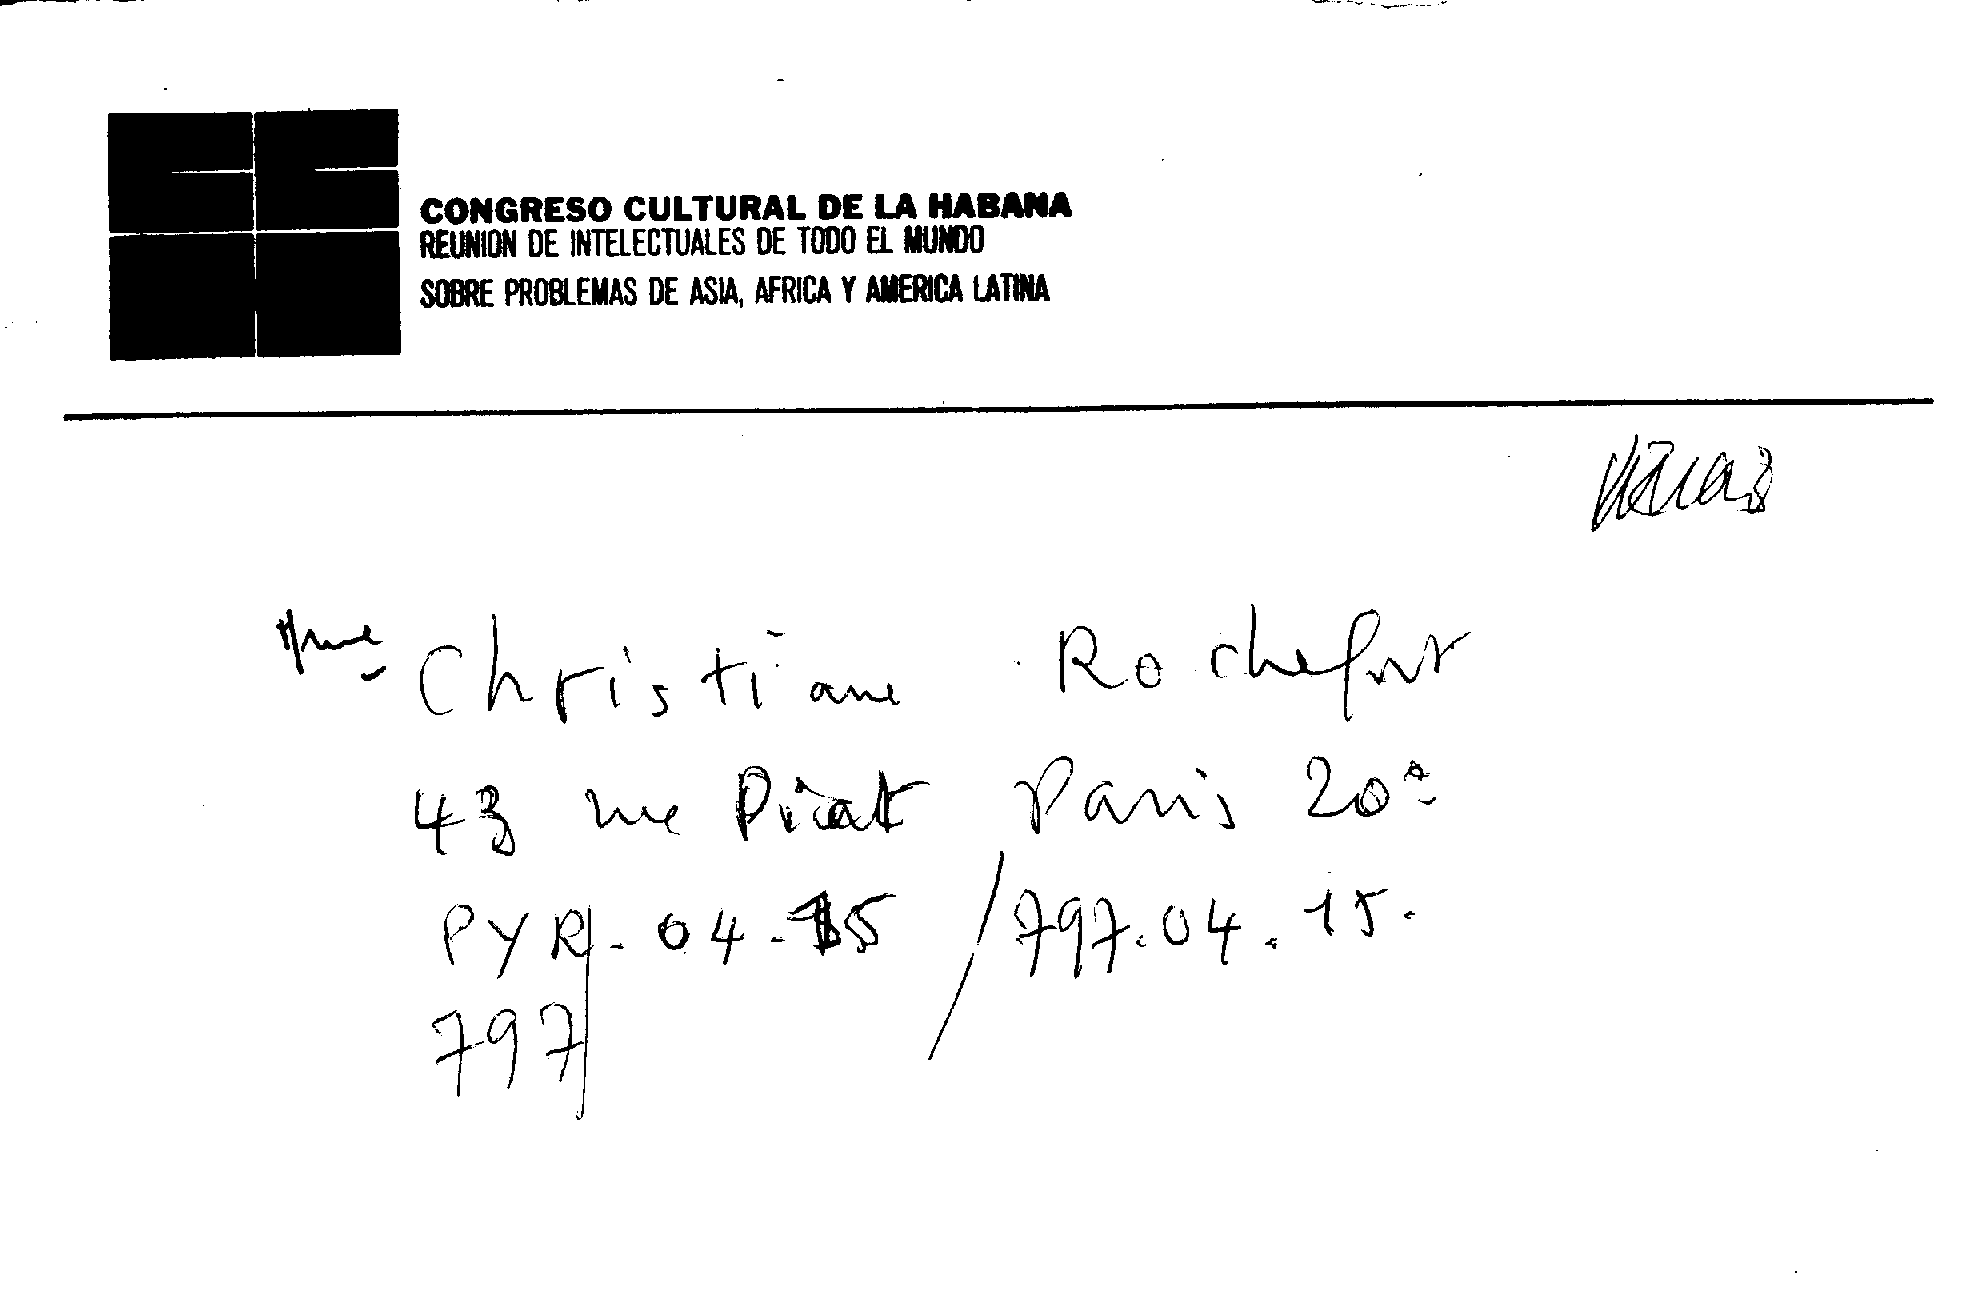 CONGRESO CULTURAL DE LA HABANA
REUNION DE INTELECTUALES DE TODO EL MUNDO
SOBRE PROBLEMAS DE ASIA, AFRICA Y AMERICA LATINA
Mme Christiane Rochefort
43 rue Piat Paris 20e
PYR. 04. 15 / 797. 04. 15.
797